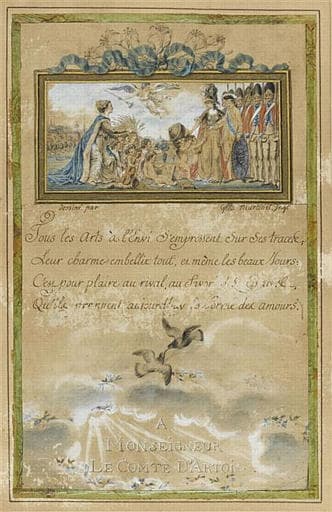 dessiné par
Tous les Arts à l'Envi S'empressent Sur Ses traces,
Leur charme embellit tout, et même les beaux Jours:
C'est pour plaire au rival, au
Qu'ils prennent aujourd'huy la forme des amours.
A
MONSEIGNEUR
LE COMTE D'ARTOIS